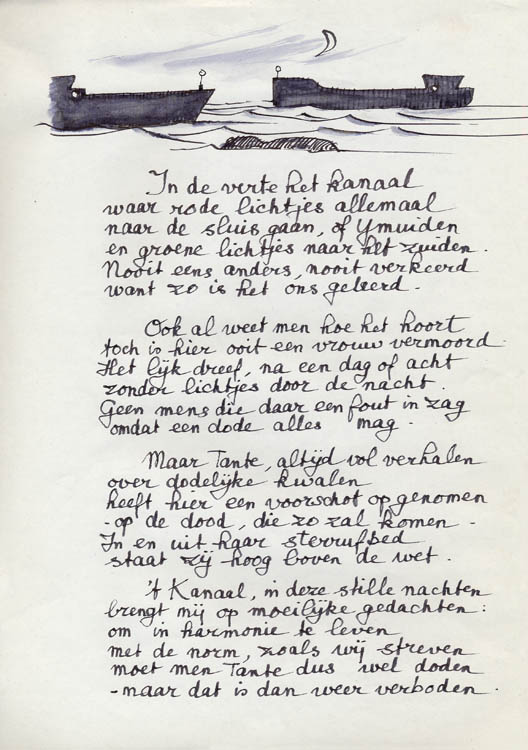 In de verte het kanaal
waar rode lichtjes allemaal
naar de sluis gaan, of Ymuiden
en groene lichtjes naar het zuiden.
Nooit eens anders, nooit verkeerd
want zo is het ons geleerd.
Ook al weet men hoe het hoort
toch is hier ooit een vrouw vermoord.
Het lijk dreef, na een dag of acht
zonder lichtjes door de nacht.
Geen mens die daar een fout in zag
omdat een dode alles mag.
Maar Tante, altijd vol verhalen
over dodelijke kwalen
heeft hier een voorschot op genomen
- op de dood, die zo zal komen -
In en uit haar sterrufbed
staat zij hoog boven de wet.
't Kanaal, in deze stille nachten
brengt mij op moeilijke gedachten:
om in harmonie te leven
met de norm, zoals wij streven
moet men Tante dus wel doden
- maar dat is dan weer verboden.